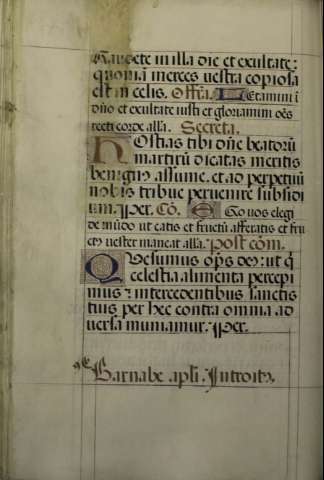 Gaudete in illa die et exultate:
quoniā merces vestra copiosa
est in celis. Offrā. Letamini ī
dn̄o et exultate iusti et gloriamini oēs
recti corde alla. Secreta.
Hostias tibi dn̄e beatorū
martirū dicatas meritis
benignꝰ assume. et ad perpetuū
nobis tribue pervenire subsidi
um. Per. Cō. Ego vos elegi
de mūdo ut eatis et fructū afferatis et fru
ctꝰ vester maneat alla. Post com̄.
Quesumus op̄s deꝰ: ut q̄
celestia alimenta percepi
mus ⁊ intercedentibus sanctis
tuis per hec contra omnia ad
versa muniamur. Per.
Barnabe apl̄i. Introitꝰ